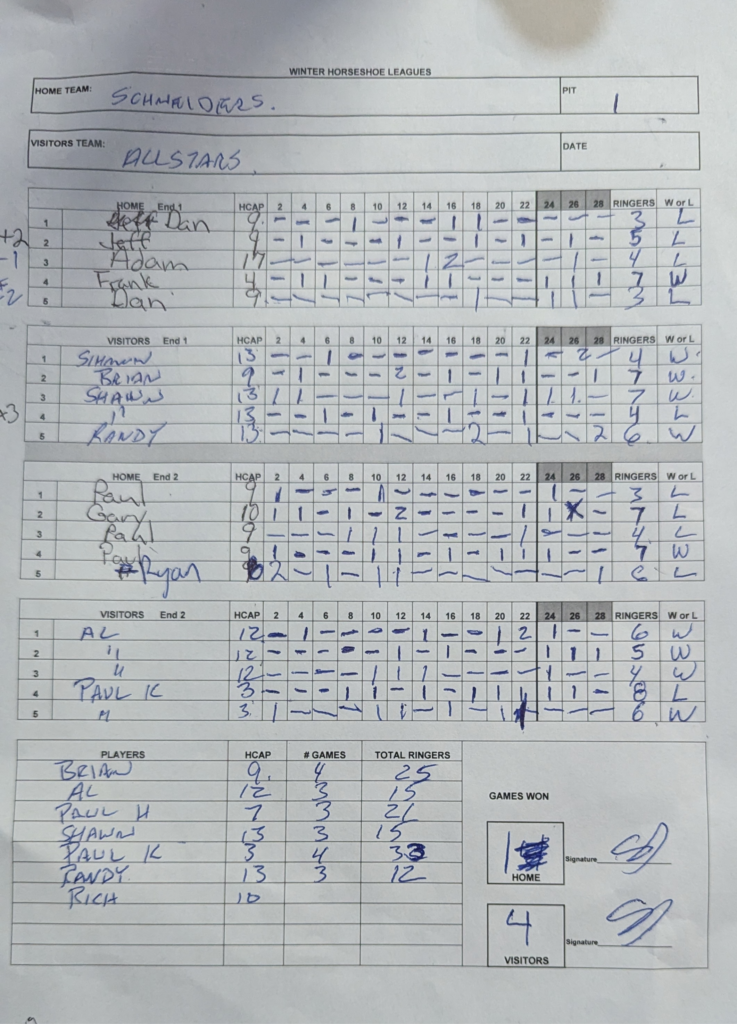 WINTER HORSESHOE LEAGUES
HOME TEAM: SCHNEIDERS. PIT 1
VISITORS TEAM: ALLSTARS DATE
HOME End 1 HCAP 2 4 6 8 10 12 14 16 18 20 22 24 26 28 RINGERS W or L
1 Dan 9 - - - 1 - - - 1 1 - - - - - 3 L
+2 2 Jeff 9 - 1 - - - 1 - - 1 - 1 - 1 - 5 L
-1 3 Adam 17 - - - - - - 1 2 - - - - 1 - 4 L
4 Frank 4 - 1 1 - - - 1 1 - - - 1 1 1 7 W
5 Dan 9 - - - - - - - - 1 - - 1 1 - 3 L
VISITORS End 1 HCAP 2 4 6 8 10 12 14 16 18 20 22 24 26 28 RINGERS W or L
1 SHAWN 13 - - 1 - - - - - - - 1 - 2 - 4 W.
2 BRIAN 9 - 1 - - - 2 - 1 - 1 1 - - 1 7 W.
3 SHAWN 13 1 1 - - - 1 - - 1 - 1 1 1. - 7 W
+3 4 " 13 - - 1 - 1 - - 1 - - 1 - - - 4 L
5 RANDY 13 - - - - 1 - - - 2 - 1 - - 2 6 W
HOME End 2 HCAP 2 4 6 8 10 12 14 16 18 20 22 24 26 28 RINGERS W or L
1 Paul 9 1 - - - 1 - - - - - - 1 - - 3 L
2 Gary 10 1 1 - 1 - 2 - - - - 1 1 - 7 L
3 Paul 9 - - - 1 1 1 - - - - 1 - - - 4 L
4 Paul 9 1 - - - 1 - 1 - 1 1 1 1 - - 7 W
5 Ryan 2 - 1 - 1 1 - - - - - - - 1 6 L
VISITORS End 2 HCAP 2 4 6 8 10 12 14 16 18 20 22 24 26 28 RINGERS W or L
1 AL 12 - 1 - - - - 1 - - 1 2 1 - - 6 W
2 " 12 - - - - - 1 - 1 - - - 1 1 1 5 W
3 " 12 - - - - 1 1 1 - - - - 1 - - 4 W
4 PAUL K 3 - - - 1 1 - 1 - 1 1 1 1 1 - 8 L
5 " 3 1 - - - 1 1 - 1 - 1 1 - - - 6 W
PLAYERS HCAP # GAMES TOTAL RINGERS
BRIAN 9. 4 25
AL 12 3 15
PAUL H 7 3 21
SHAWN 13 3 15
PAUL K 3 4 33
RANDY 13 3 12
RICH 10
GAMES WON
1
HOME
Signature
4
VISITORS
Signature